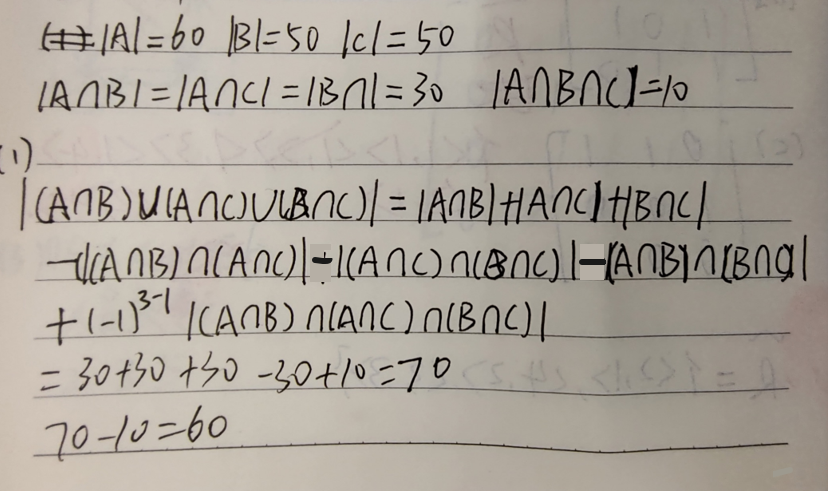 |A|=60 |B|=50 |C|=50
|A∩B|=|A∩C|=|B∩|=30 |A∩B∩C|=10
(1)
|(A∩B)∪(A∩C)∪(B∩C)|=|A∩B|+|A∩C|+|B∩C|
-|(A∩B)∩(A∩C)|-|(A∩C)∩(B∩C)|-|(A∩B)∩(B∩C)|
+(-1)³⁻¹|(A∩B)∩(A∩C)∩(B∩C)|
=30+30+30-30+10=70
70-10=60